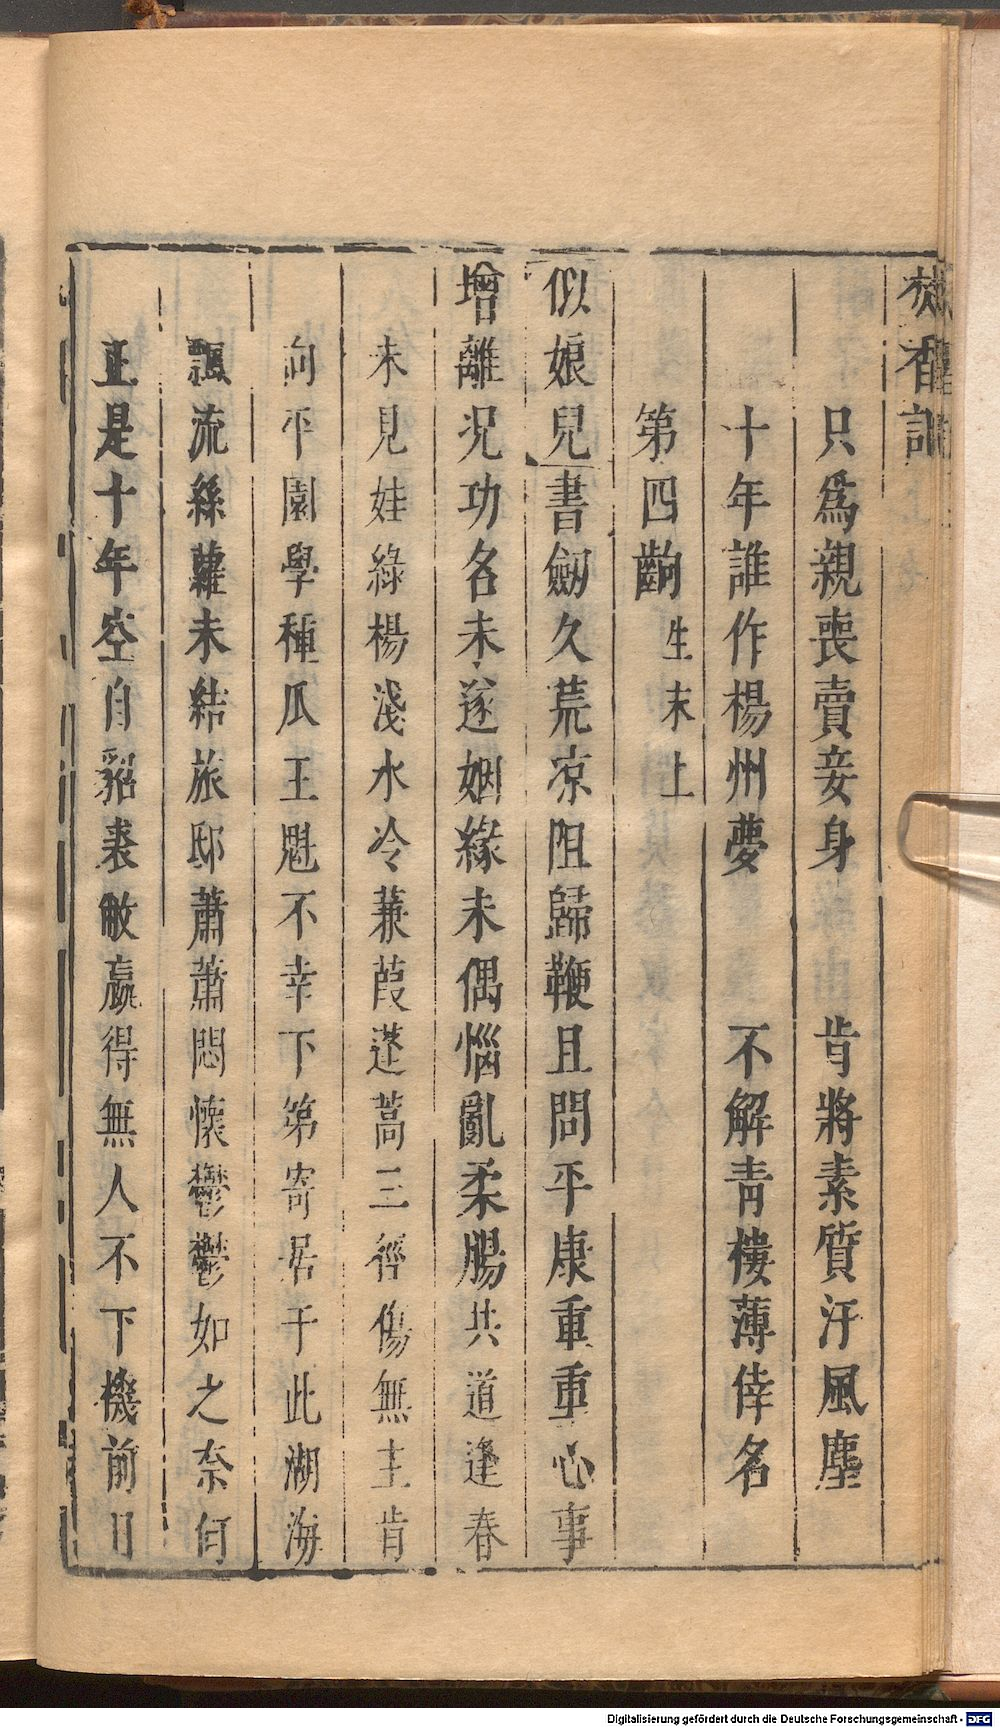 焚香記
只為親喪賣妾身　肯將素質汙風塵
十年誰作楊州夢　不解青樓薄倖名
第四齣 生末上
似娘兒書劒久荒凉阻歸鞭且問平康重重心事
增離况功名未遂姻緣未偶惱亂柔腸共道逢春
未見娃綠楊淺水冷蒹葭蓬蒿三徑傷無主肯
向平園學種瓜王魁不幸下第寄居于此湖海
飄流絲蘿未結旅邸蕭蕭悶懷鬱鬱如之奈何
正是十年空自貂裘敝嬴得無人不下機前日
Digitalisierung gefördert durch die Deutsche Forschungsgemeinschaft - DFG